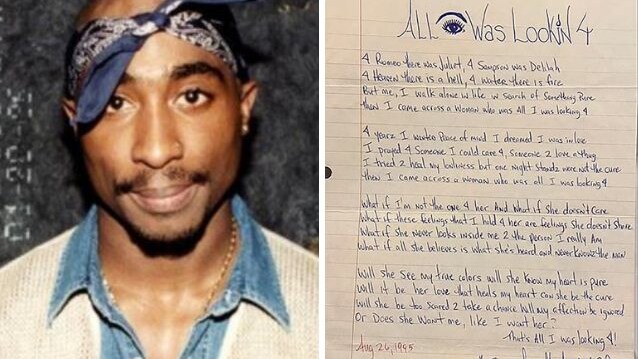 ALL 👁 WAS LOOKiN 4
4 Romeo there was Juliet, 4 Sampson was Delilah
4 Heaven there is a hell, 4 water there is fire
But me, I walk alone in life in search of Something Pure
then I came across a woman who was All I was looking 4
4 yearz I wanted peace of mind I dreamed I was in love
I prayed 4 Someone I could care 4, Someone 2 love a thug
I tried 2 heal my but one night Standz were not the cure
then I came across a woman who was all I was looking 4
what if I'm not the one 4 her And what if she doesn't Care
What if these feelings that I hold 4 her are feelings She doesn't Share
What if She never looks inside me 2 the person I really Am
what if all she believes is what she's heard and never Knows the man
will She See my true colors will she Know my heart is pure
will it be her love that heals my heart can she be the cure
will she be too Scared 2 take a chance will my affection be ignored
Or Does she Want me, like I want her?
That's All I was looking 4!
Aug 26, 1995